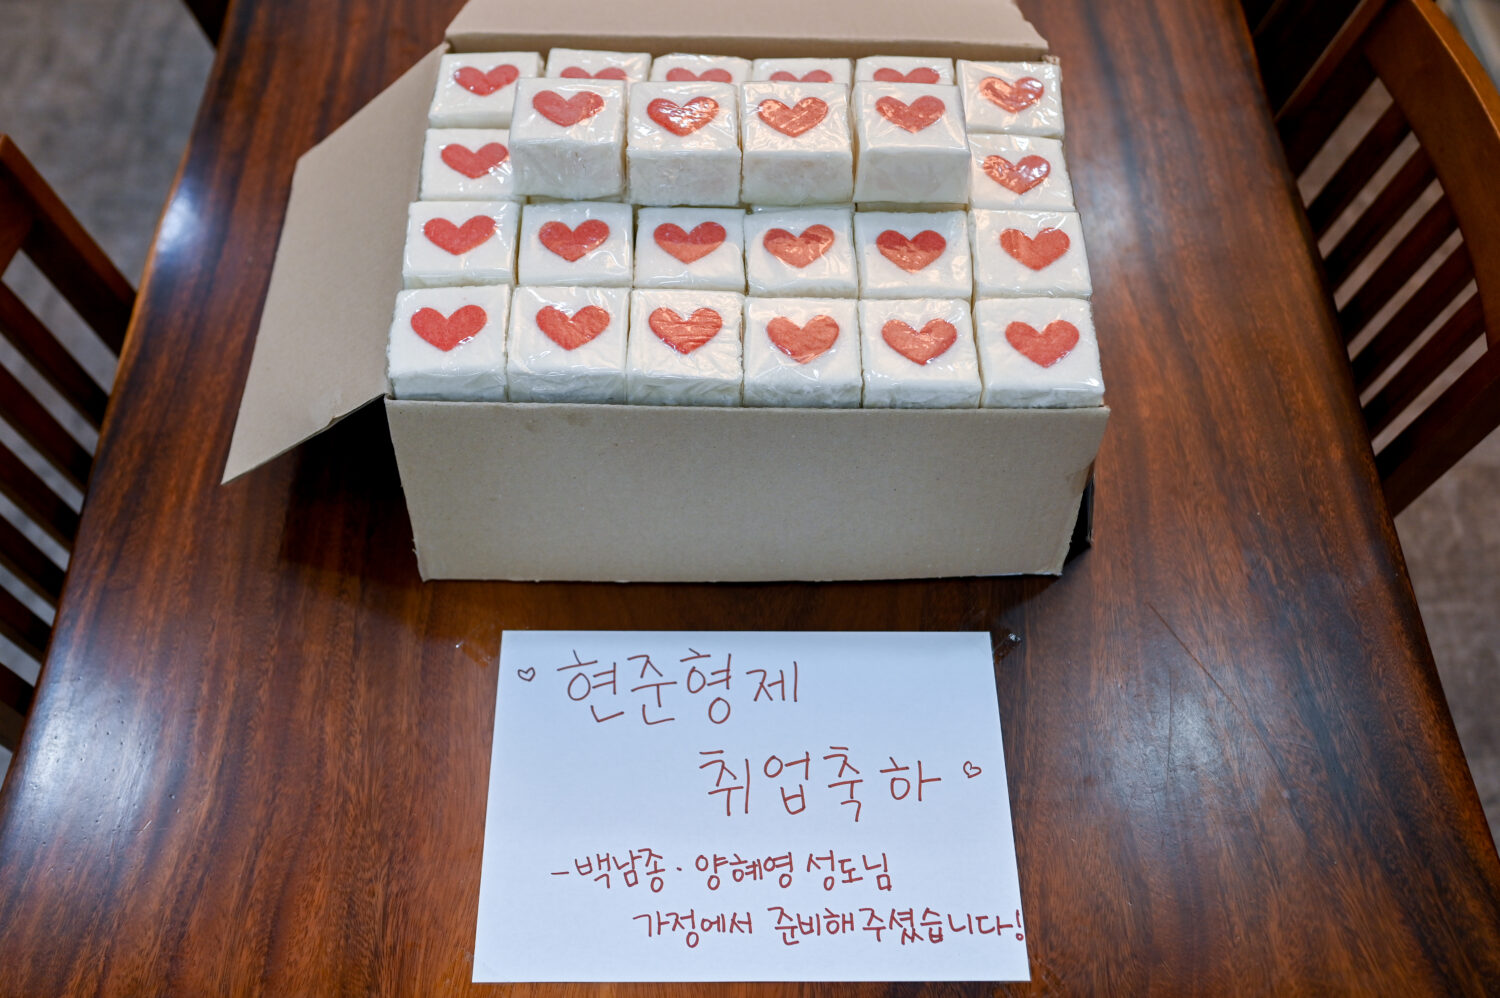 ♡ 현준형제
취업축하 ♡
- 백남종 · 양혜영 성도님
가정에서 준비해주셨습니다!